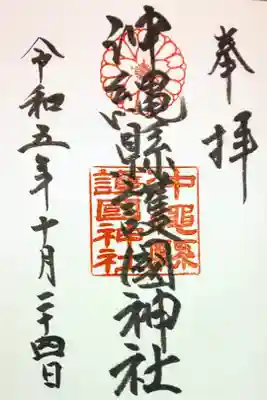 奉拝
沖縄縣護國神社
沖縄県護国神社
令和五年十月二十四日